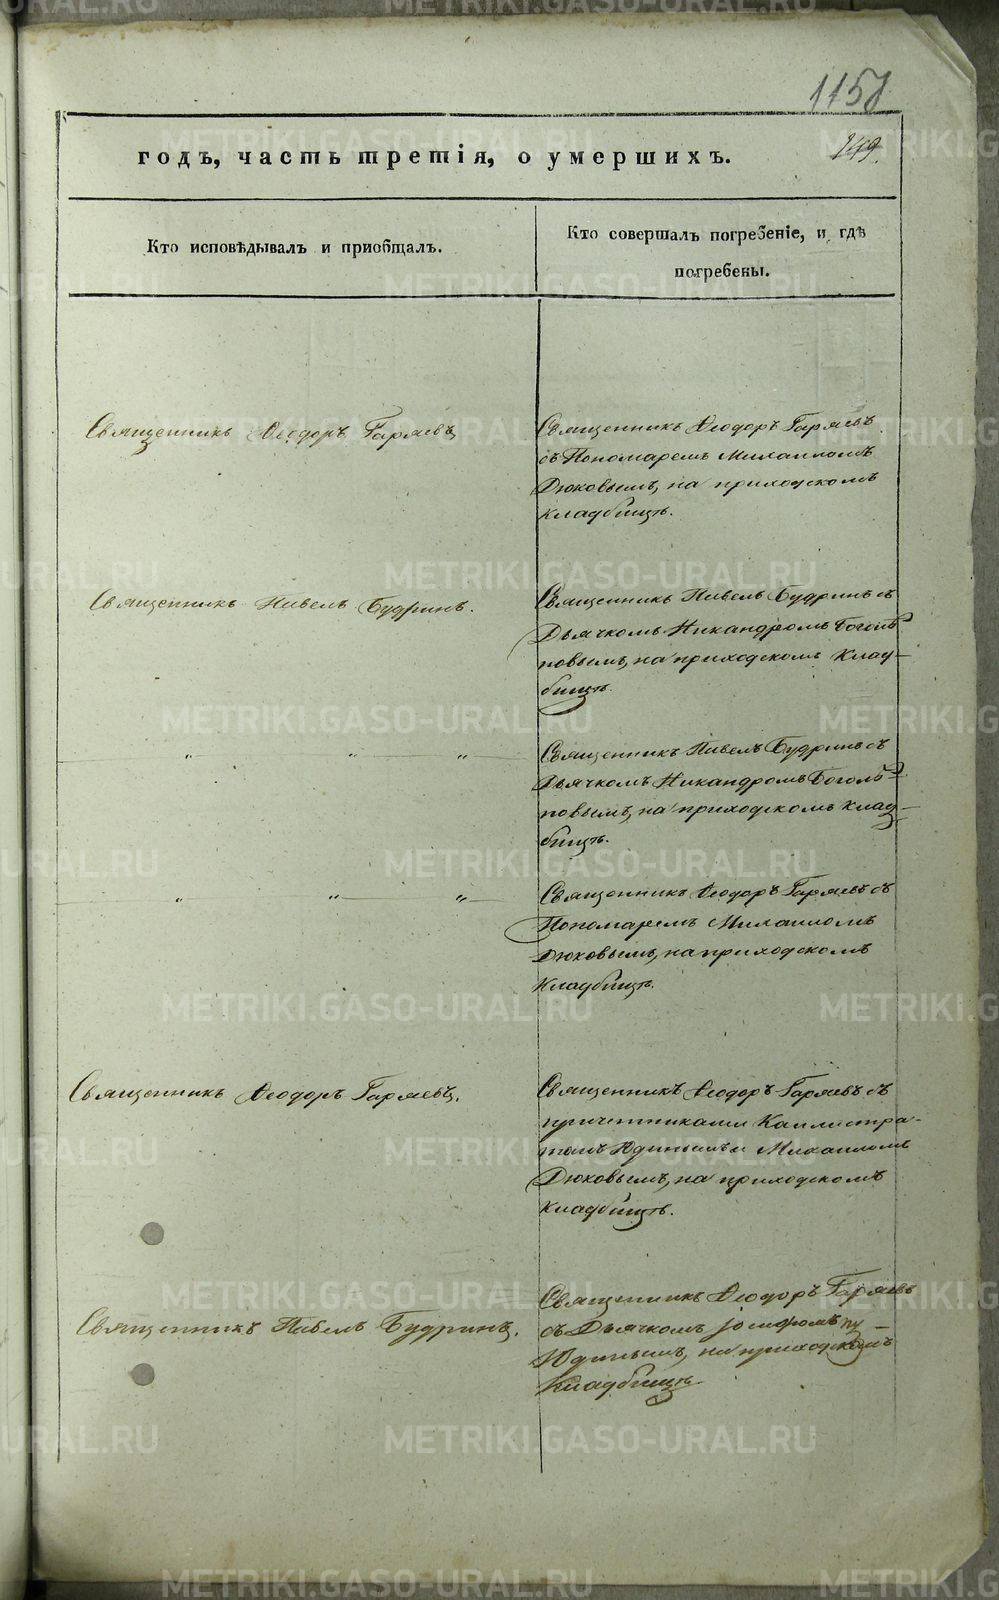 1158
249.
годъ, часть третія, о умершихъ.
Кто исповѣдывалъ и пріобщалъ.
Кто совершалъ погребеніе, и гдѣ
погребены.
Священникъ Ѳеодоръ Гаряевъ
Священникъ Ѳеодоръ Гаряевъ
съ Пономаремъ Михаиломъ
Дюковымъ, на приходскомъ
кладбищѣ.
Священникъ Павелъ Будринъ.
Священникъ Павелъ Будринъ съ
Дьячкомъ Никандромъ Боголѣ
повымъ, на приходскомъ клад-
бищѣ.
" " "
Священникъ Павелъ Будринъ съ
Дьячкомъ Никандромъ Боголѣ-
повымъ, на приходскомъ клад-
бищѣ.
" " "
Священникъ Ѳеодоръ Гаряевъ съ
Пономаремъ Михаиломъ
Дюковымъ, на приходскомъ
кладбищѣ.
Священникъ Ѳеодоръ Гаряевъ.
Священникъ Ѳеодоръ Гаряевъ съ
причетниками Каллистра-
томъ Юдинымъ и Михаиломъ
Дюковымъ, на приходскомъ
кладбищѣ.
Священникъ Павелъ Будринъ.
Священникъ Ѳеодоръ Гаряевъ
съ Дьячкомъ Іосифомъ
Юдинымъ, на приходскомъ
кладбищѣ.
METRIKI.GASO-URAL.RU